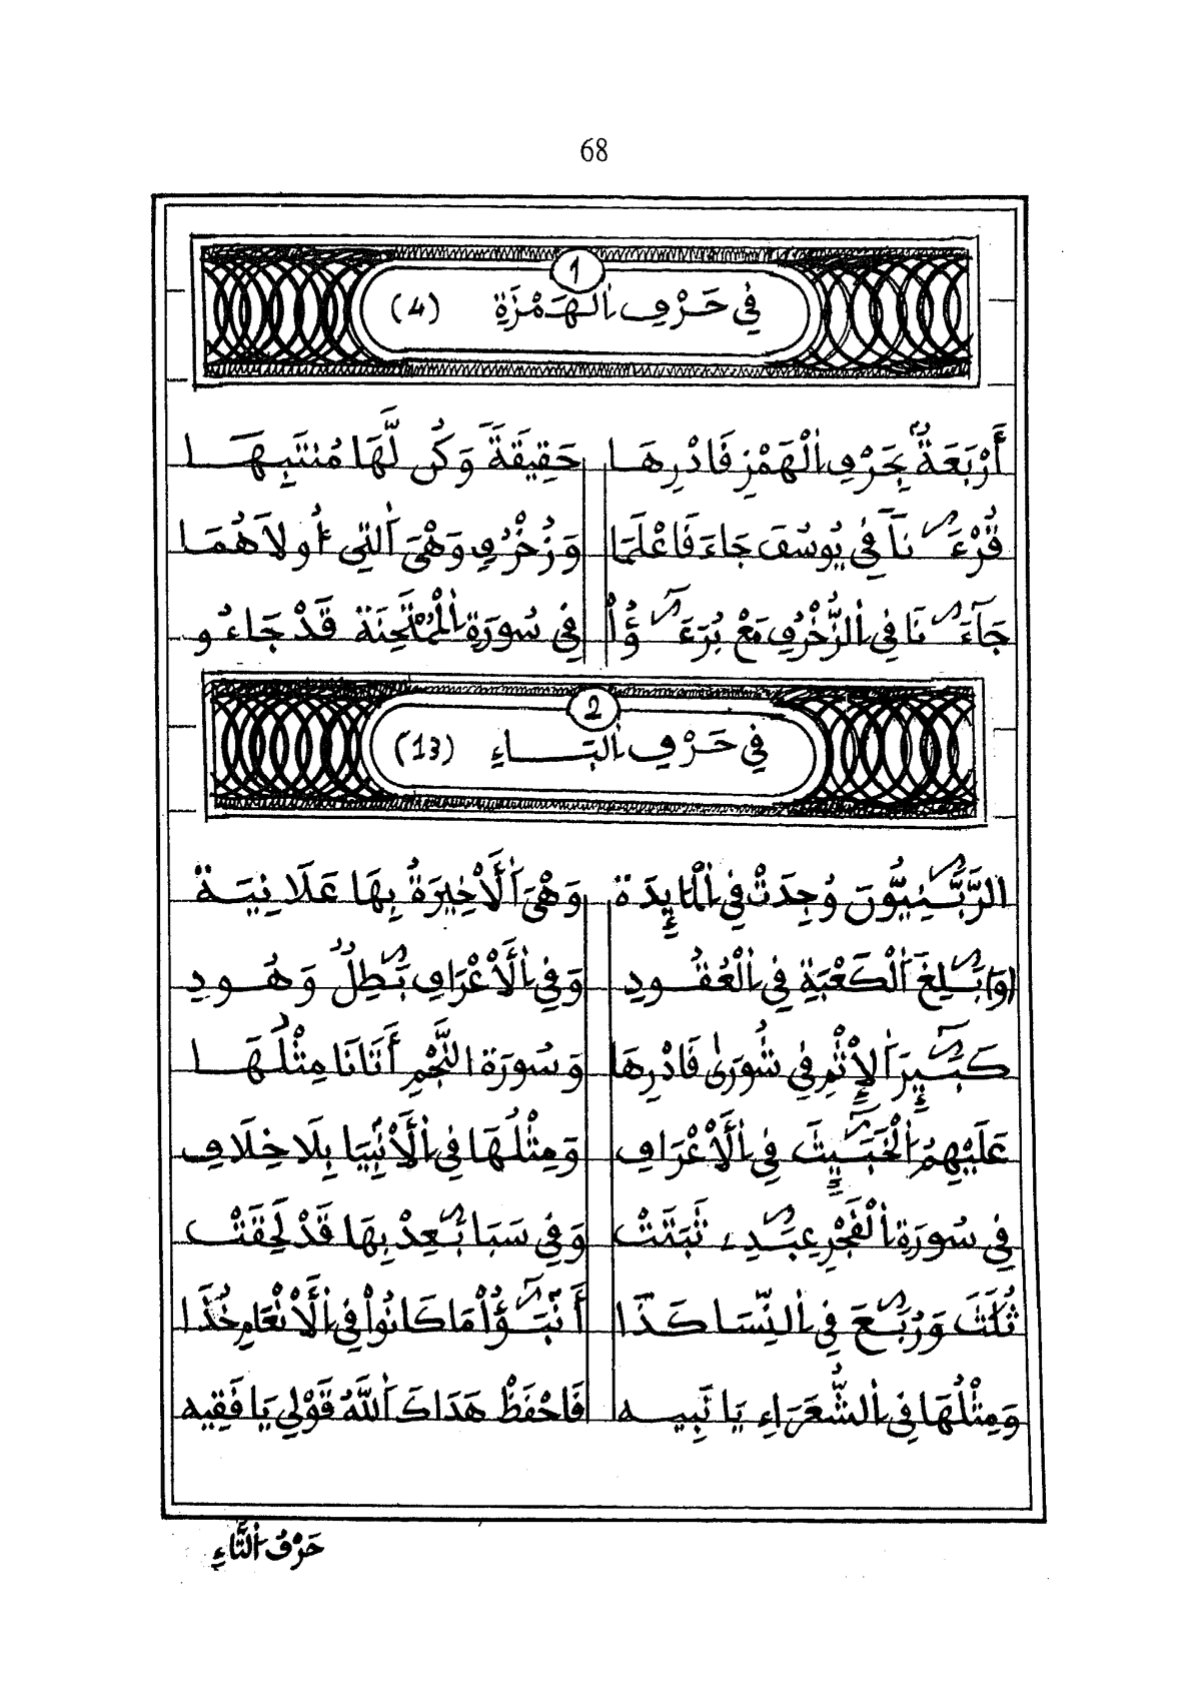 68
1
في حَرْفِ الهَمْزَةِ (4)
أَرْبَعَةٌ بِحَرْفِ الْهَمْزِ فَادْرِهَا حَقِيقَةً وَكُن لَّهَا مُنتَبِهَا
قُرْءَٰناً في يُوسُفَ جَاءَ فَاعْلَمَا وَزُخْرُفِ وَهْيَ التِي أُولاَهُمَا
جَآءَٰنَا في الزُّخْرُفِ مَعْ بُرَءَٰٓؤُاْ في سُورَةِ الْمُمْتَحِنَةِ قَدْ جَاءُو
2
في حَرْفِ البَاءِ (13)
الرَّبَّٰنِيُّونَ وُجِدَتْ في الْمَايِٕدَة وَهْيَ الَأخِيرَةُ بِهَا عَلَانِيَة
(وَ) بَٰلِغَ الْكَعْبَةِ في الْعُقُودِ وَفي الَأعْرَافِ بَٰطِلٌ وَهُودِ
كَبَٰٓئِرَ الإِثْمِ في شُورَىٰ فَادْرِهَا وَسُورَة النَّجْمِ أَتَانَا مِثْلُهَا
عَلَيْهِمُ الْخَبَٰٓئِثَ في الَأعْرَافِ وَمِثْلُهَا في الَأنْبِيَا بِلَا خِلَافِ
في سُورَةِ الْفَجْرِ عِبَٰدِے ثَبَتَتْ وَفي سَبَا بَٰعِدْ بِهَا قَدْ لَحِقَتْ
ثُلَٰثَ وَرُبَٰعَ في النِّسَا كَذَا أَنۢبَٰٓؤُاْ مَا كَانُواْ في الَأنْعَامِ خُذَا
وَمِثْلُهَا في الشُّعَرَاءِ يَا نَبِيه فَاحْفَظْ هَدَاكَ اللَّهُ قَوْلِي يَا فَقِيه
حَرْفُ التَّاءِ